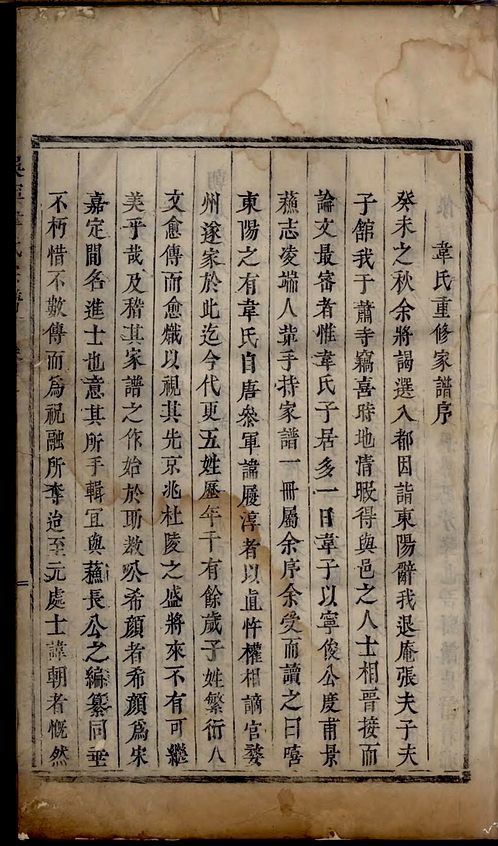 韋氏重修家譜序
癸未之秋余將謁選入都因詣東陽辭我退庵張夫子夫
子館我于蕭寺竊喜時地情暇得與邑之人士相晉接而
論文最審者惟韋氏子居多一日韋子以寧俊公度甫景
蘓志凌端人茀手持家譜一冊屬余序余受而讀之曰嘻
東陽之有韋氏自唐叅軍諱履淳者以直忤權相謫官婺
州遂家於此迄今代更五姓歷年千有餘歲子姓繁衍八
文愈傳而愈熾以視其先京兆杜陵之盛將來不有可繼
美乎哉及稽其家譜之作始於助教公希顔者希顔爲宋
嘉定間名進士也意其所手輯冝與蘓長公之編纂同垂
不朽惜不數傳而爲祝融所奪迨至元處士諱朝者慨然